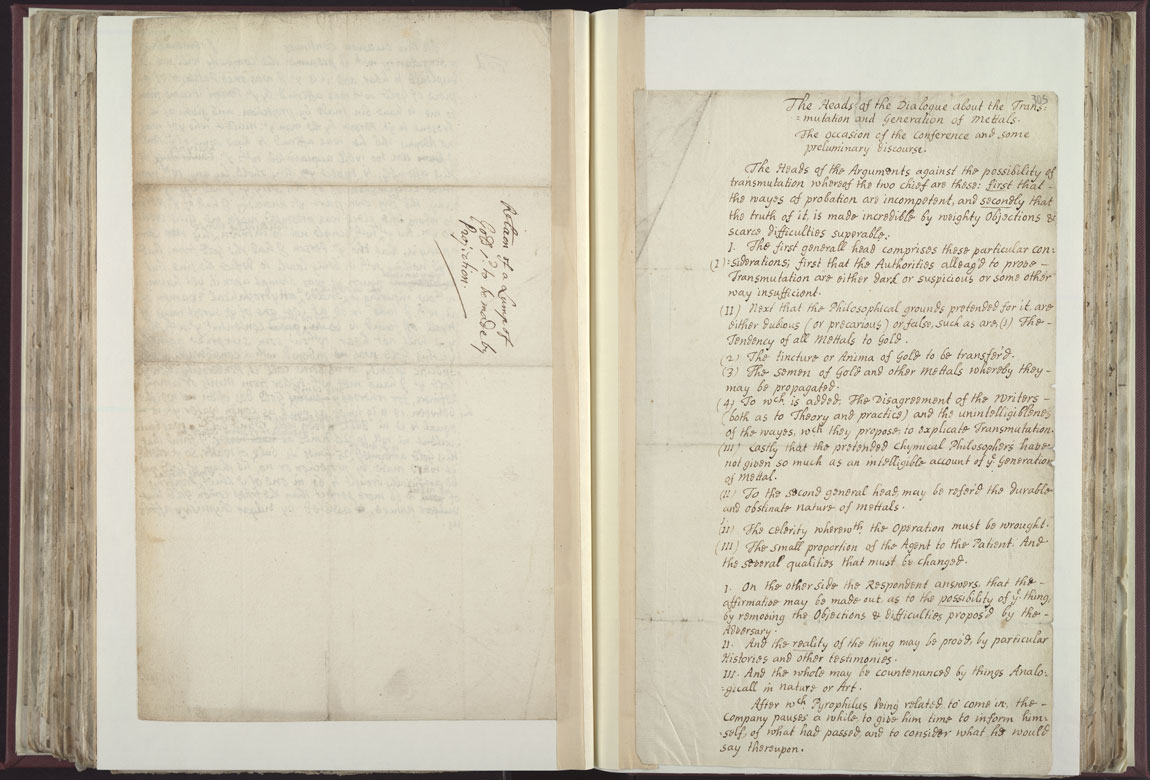 Relaõn of a Lump of
Gold s.d to be made by
Projection.
305
The Heads of the Dialogue about the Trans:
:mutation and Generation of Mettals.
The occasion of the Conference and some
preluminary discourse.
The Heads of the Arguments against the possibility of
transmutation whereof the two chief are these: first that -
the wayes of probation are incompetent, and secondly that
the truth of it, is made incredible by weighty Objections &
scarce difficulties superable.
I. The first generall head comprises these particular con:
(I) :siderations; first that the Authorities alleag'd to prove -
Transmutation are either dark or suspicious or some other
way insufficient.
(II) Next that the Philosophical grounds pretended for it, are
either dubious (or precarious) or false, such as are (1) The -
Tendency of all Mettals to Gold.
(2) The tincture or Anima of Gold to be transfer'd.
(3) The semen of Gold and other Mettals whereby they -
may be propagated.
(4) To wch is added, The Disagreement of the Writers -
(both as to Theory and practice) and the unintelligiblenes
of the wayes, wch they propose to explicate Transmutation.
(III) Lastly that the pretended Chymical Philosophers have -
not given so much as an intelligible account of ye Generation
of Mettal.
(II) To the second general head may be refer'd the durable
and obstinate nature of mettals.
(II) The celerity wherewth the Operation must be wrought.
(III) The small proportion of the Agent to the Patient. And
the several qualities that must be changed.
I. On the other side the Respondent answers, that the -
affirmative may be made out as to the possibility of ye thing,
by removing the Objections & difficulties propos'd by the -
Adversary.
II. And the reality of the thing may be prov'd, by particular
Histories and other testimonies.
III. And the whole may be countenanced by things Analo:
:gicall in nature or Art.
After wch Pyrophilus being related to come in, the -
Company pauses a while to give him time to inform him:
:self, of what had passed and to consider what he would
say thereupon.